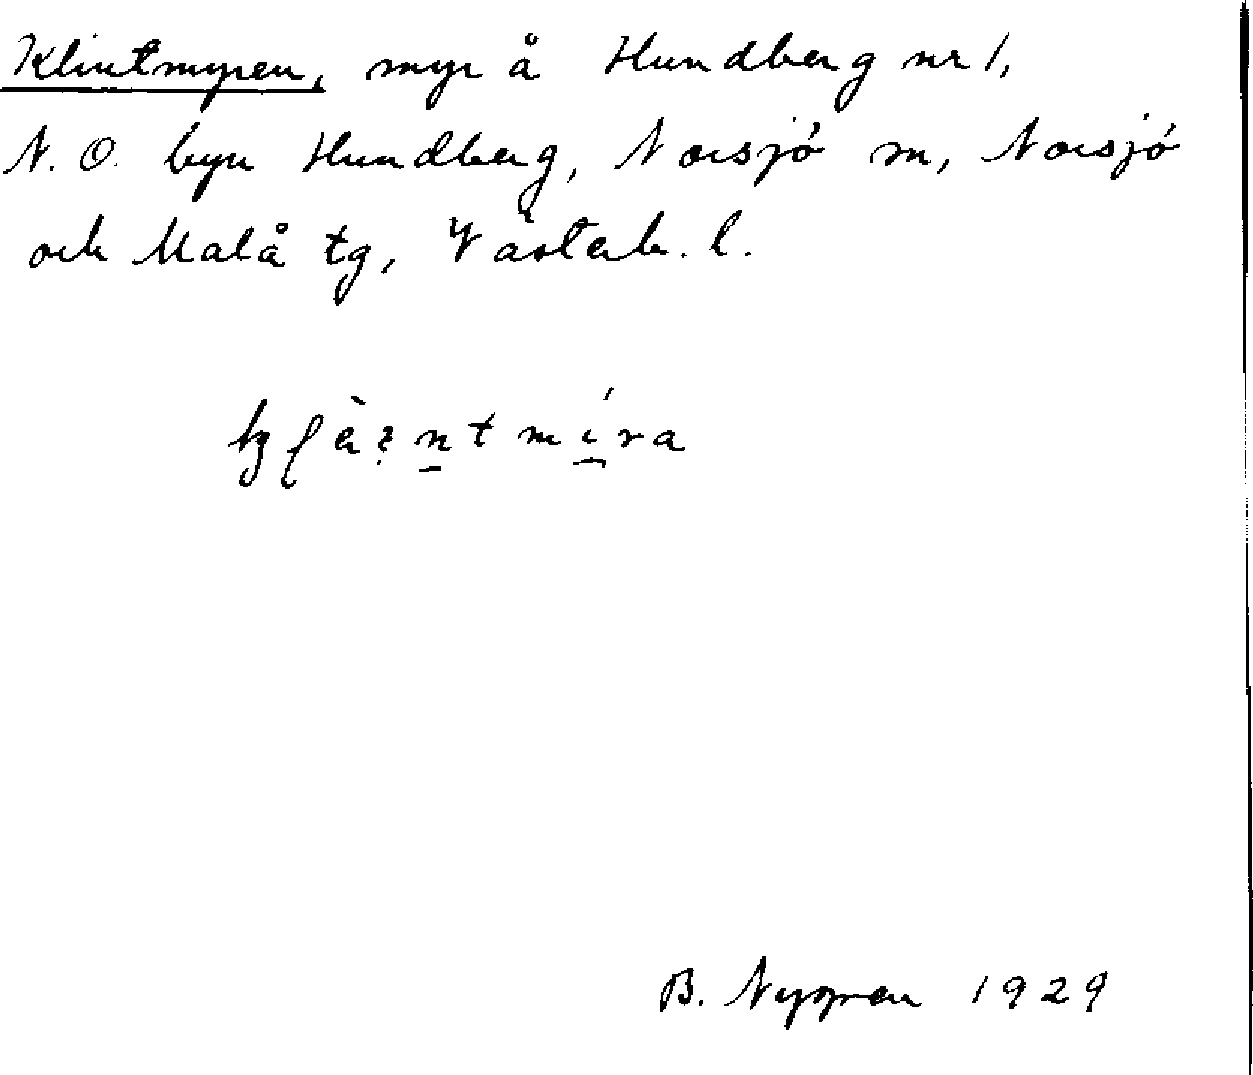 Klintmyren, myr å Hundberg nr 1,
N.O. byn Hundberg, Norsjö m, Norsjö
och Malå tg, Västerb. l.
B. Nygren 1929